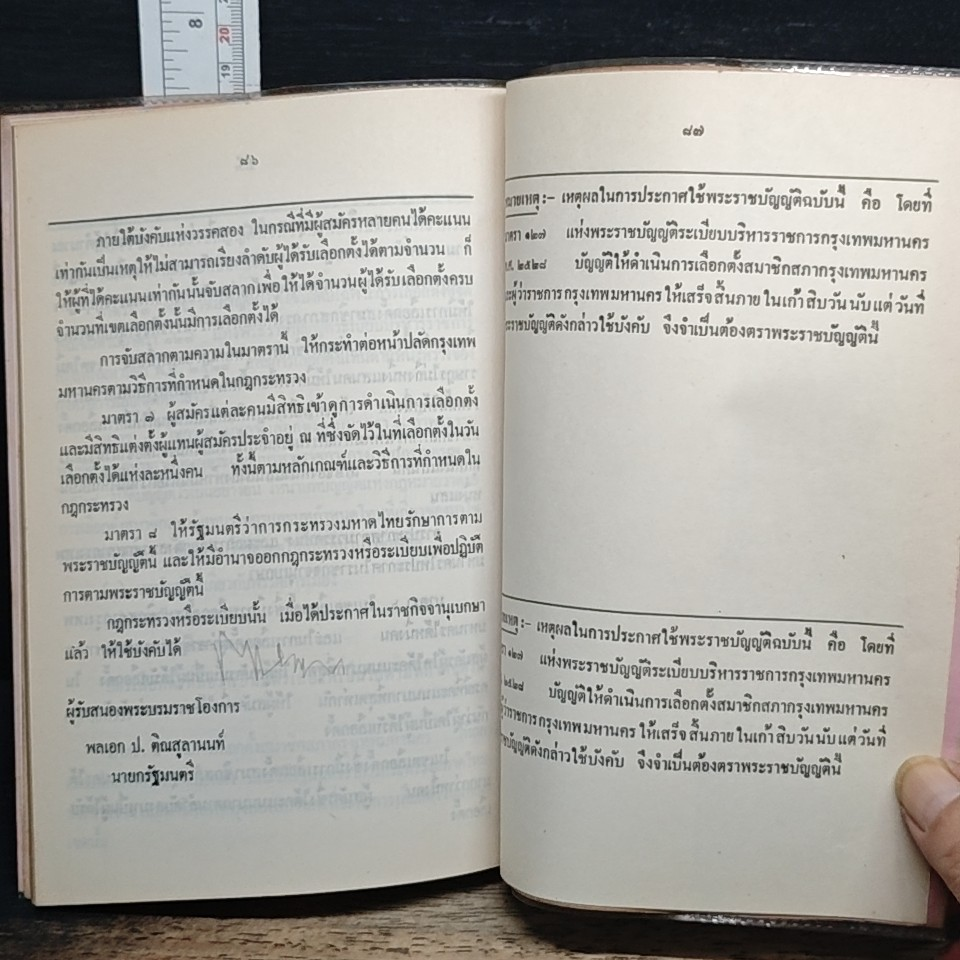 8
20
19
๘๖
ภายใต้บังคับแห่งวรรคสอง ในกรณีที่มีผู้สมัครหลายคนได้คะแนน
เท่ากันเป็นเหตุให้ไม่สามารถเรียงลำดับผู้ได้รับเลือกตั้งได้ตามจำนวน ก็
ให้ผู้ที่ได้คะแนนเท่ากันนั้นจับสลากเพื่อให้ได้จำนวนผู้ได้รับเลือกตั้งครบ
จำนวนที่เขตเลือกตั้งนั้นมีการเลือกตั้งได้
การจับสลากตามความในมาตรานี้ ให้กระทำต่อหน้าปลัดกรุงเทพ
มหานครตามวิธีการที่กำหนดในกฎกระทรวง
มาตรา ๗ ผู้สมัครแต่ละคนมีสิทธิเข้าดูการดำเนินการเลือกตั้ง
และมีสิทธิแต่งตั้งผู้แทนผู้สมัครประจำอยู่ ณ ที่ซึ่งจัดไว้ในที่เลือกตั้งในวัน
เลือกตั้งได้แห่งละหนึ่งคน ทั้งนี้ตามหลักเกณฑ์และวิธีการที่กำหนดใน
กฎกระทรวง
มาตรา ๘ ให้รัฐมนตรีว่าการกระทรวงมหาดไทยรักษาการตาม
พระราชบัญญัตินี้ และให้มีอำนาจออกกฎกระทรวงหรือระเบียบเพื่อปฏิบัติ
การตามพระราชบัญญัตินี้
กฎกระทรวงหรือระเบียบนั้น เมื่อได้ประกาศในราชกิจจานุเบกษา
แล้ว ให้ใช้บังคับได้
ผู้รับสนองพระบรมราชโองการ
พลเอก ป. ติณสูลานนท์
นายกรัฐมนตรี
๘๗
มายเหตุ :– เหตุผลในการประกาศใช้พระราชบัญญัติฉบับนี้ คือ โดยที่
มาตรา ๑๒๗ แห่งพระราชบัญญัติระเบียบบริหารราชการกรุงเทพมหานคร
.ศ. ๒๕๒๘ บัญญัติให้ดำเนินการเลือกตั้งสมาชิกสภากรุงเทพมหานคร
ละผู้ว่าราชการกรุงเทพมหานคร ให้เสร็จสิ้นภายในเก้าสิบวันนับแต่วันที่
ระราชบัญญัติดังกล่าวใช้บังคับ จึงจำเป็นต้องตราพระราชบัญญัตินี้
เหตุ :– เหตุผลในการประกาศใช้พระราชบัญญัติฉบับนี้ คือ โดยที่
รา ๑๒๗ แห่งพระราชบัญญัติระเบียบบริหารราชการกรุงเทพมหานคร
๒๕๒๘ บัญญัติให้ดำเนินการเลือกตั้งสมาชิกสภากรุงเทพมหานคร
ว่าราชการกรุงเทพมหานคร ให้เสร็จสิ้นภายในเก้าสิบวันนับแต่วันที่
าชบัญญัติดังกล่าวใช้บังคับ จึงจำเป็นต้องตราพระราชบัญญัตินี้